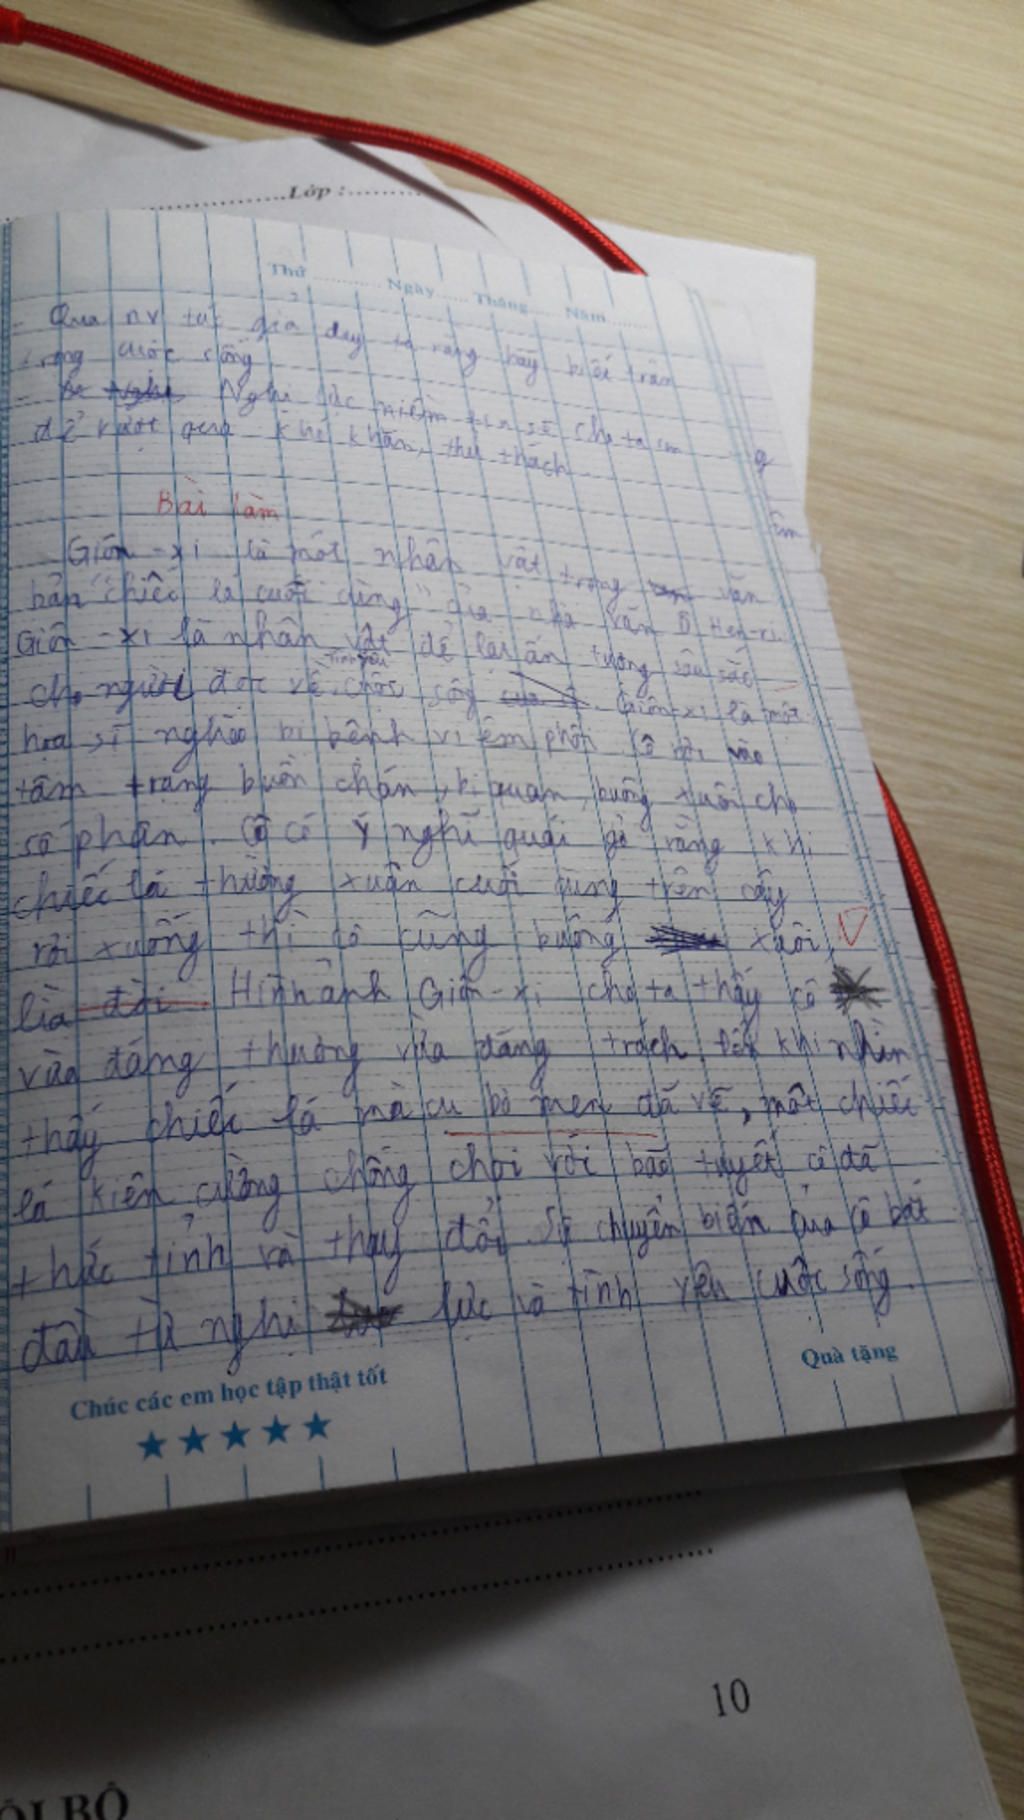 Lớp :
Thứ Ngày Tháng Năm
- Qua nv tác giả dạy ta rằng hãy biết trân
trọng cuộc sống
- Nghị lực niềm tin sẽ cho ta sm
để vượt qua khó khăn, thử thách
Bài làm
Giôn-xi là một nhân vật trong văn
bản "chiếc lá cuối cùng" của nhà văn Ô Hen-ri.
Giôn-xi là nhân vật để lại ấn tượng sâu sắc
tình yêu
cho người đọc về cuộc sống. Giôn-xi là một
họa sĩ nghèo bị bệnh viêm phổi. Cô rơi vào
tâm trạng buồn chán, bi quan, buông xuôi cho
số phận. Cô có ý nghĩ quái gở rằng khi
chiếc lá thường xuân cuối cùng trên cây
rơi xuống thì cô cũng buông xuôi,
lìa đời. Hình ảnh Giôn-xi cho ta thấy cô
vừa đáng thương vừa đáng trách. khi nhìn
thấy chiếc lá mà cụ bơ men đã vẽ, một chiếc
lá kiên cường chống chọi với bão tuyết cô đã
thức tỉnh và thay đổi. Sự chuyển biến của cô bắt
đầu từ nghị lực và tình yêu cuộc sống.
Chúc các em học tập thật tốt
Quà tặng
10
ỘI BỘ